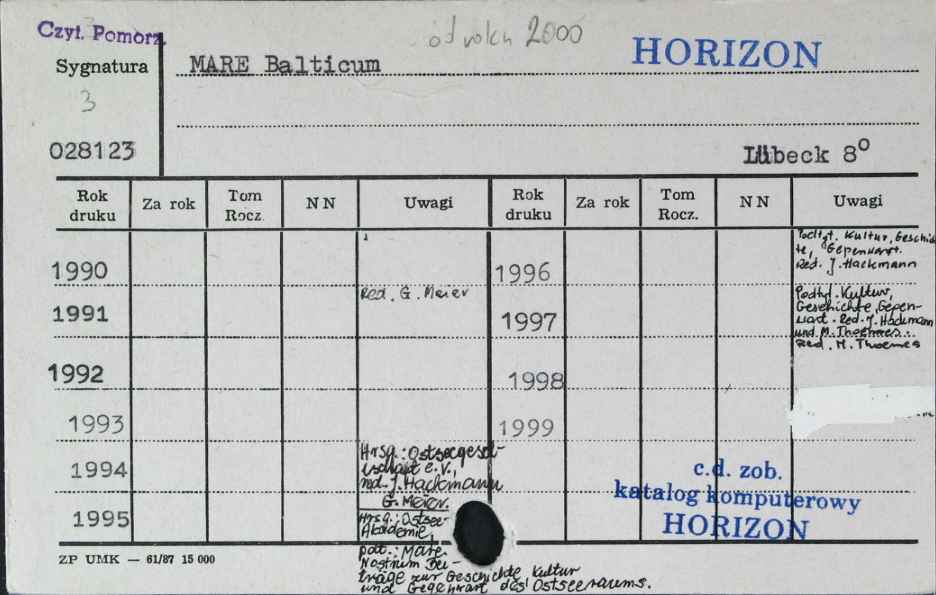 Czyt. Pomorz.
od roku 2000
HORIZON
Sygnatura
MARE Balticum
3
028123
Lübeck 8°
Rok druku
Za rok
Tom Rocz.
N N
Uwagi
Rok druku
Za rok
Tom Rocz.
N N
Uwagi
1990
1996
Podtyt. Kultur, Geschich
te, Gegenwart.
Red. J. Hackmann
1991
Red. G. Meier
1997
Podtyt. Kultur,
Geschichte, Gegen-
wart. Red. J. Hackmann
und M. Thoemes..
Red. M. Thoemes
1992
1998
1993
1999
1994
Hrsg.: Ostseegesel-
lschaft e.V.,
red. J. Hackmann
G. Meier.
1995
Hrsg.: Ostsee-
Akademie,
Mare
Nostrum Bei-
träge zur Geschichte Kultur
und Gegenwart des Ostseeraums.
c.d. zob.
katalog komputerowy
HORIZON
ZP UMK — 61/87 15 000